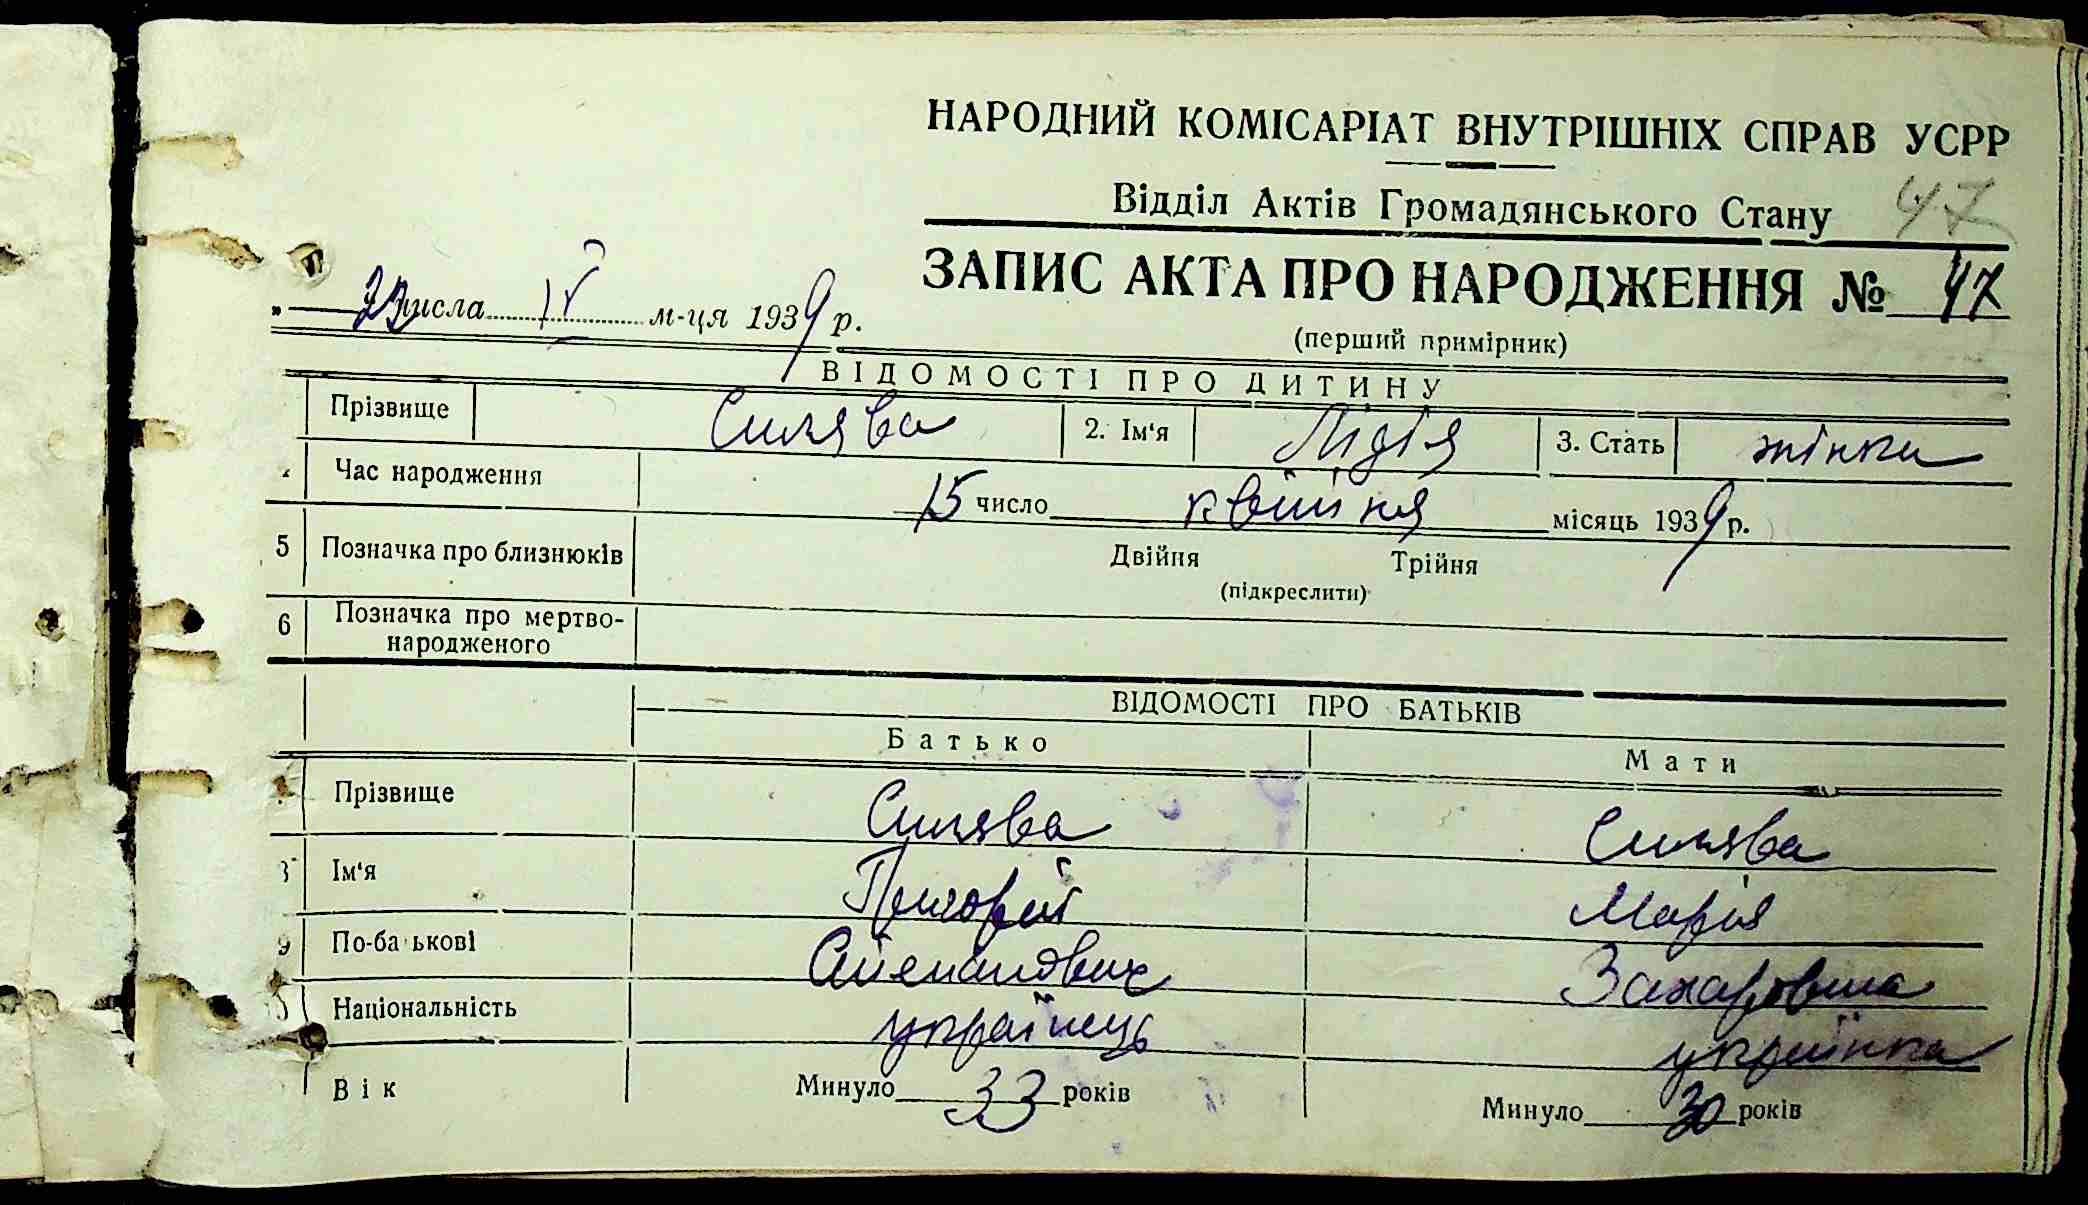 НАРОДНИЙ КОМІСАРІАТ ВНУТРІШНІХ СПРАВ УСРР
Відділ Актів Громадянського Стану 47
ЗАПИС АКТА ПРО НАРОДЖЕННЯ № 47
„ числа м-ця 1939 р.
(перший примірник)
ВІДОМОСТІ ПРО ДИТИНУ
Прізвище 2. Ім'я Лідія 3. Стать жінки
Час народження 15 число квітня місяць 1939 р.
5 Позначка про близнюків Двійня Трійня
(підкреслити)
6 Позначка про мертво-
народженого
ВІДОМОСТІ ПРО БАТЬКІВ
Батько Мати
Прізвище
Ім'я Григорій Марія
9 По-ба ькові Степанович Захаровна
Національність українець українка
Вік Минуло 33 років Минуло 30 років